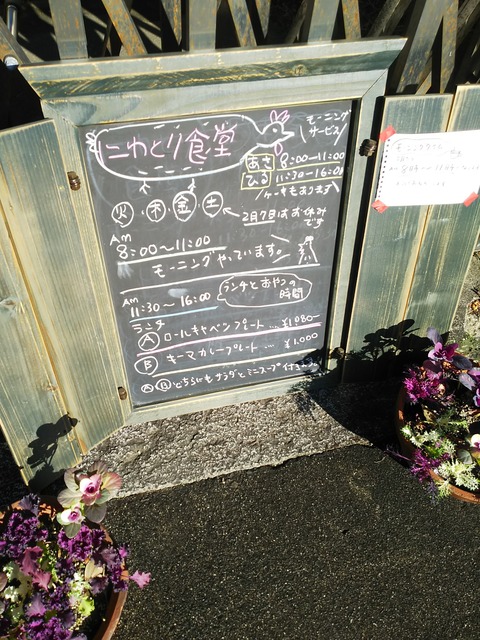 にわとり食堂
モーニング
サービス
あさ 8:00〜11:00
ひる 11:30〜16:00
ケーキもあります
火・木・金・土 ← 2月7日はお休み
です
Am
8:00〜11:00
モーニングやっています。
Am
11:30〜16:00
ランチとおやつの
時間
ランチ
Ⓐ ロールキャベツプレート … ¥1,080-
Ⓑ キーマカレープレート … ¥1,000
ⒶⒷどちらにもサラダとミニスープ付き